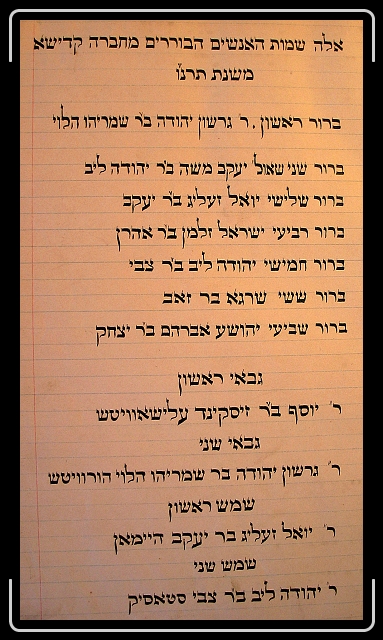 אלה שמות האנשים הבוררים מחברה קדישא
משנת תרנ״ו
ברור ראשון . ר׳ גרשון יהודה ב״ר שמריהו הלוי
ברור שני שאול יעקב משה ב״ר יהודה ליב
ברור שלישי יואל זעליג ב״ר יעקב
ברור רביעי ישראל זלמן ב״ר אהרן
ברור חמישי יהודה ליב ב״ר צבי
ברור ששי שרגא בר זאב
ברור שביעי יהושע אברהם ב״ר יצחק
גבאי ראשון
ר׳ יוסף ב״ר זיסקינד עלישאוויטש
גבאי שני
ר׳ גרשון יהודה בר שמריהו הלוי הורוויטש
שמש ראשון
ר׳ יואל זעליג בר יעקב היימאן
שמש שני
ר׳ יהודה ליב ב״ר צבי סטאסיק